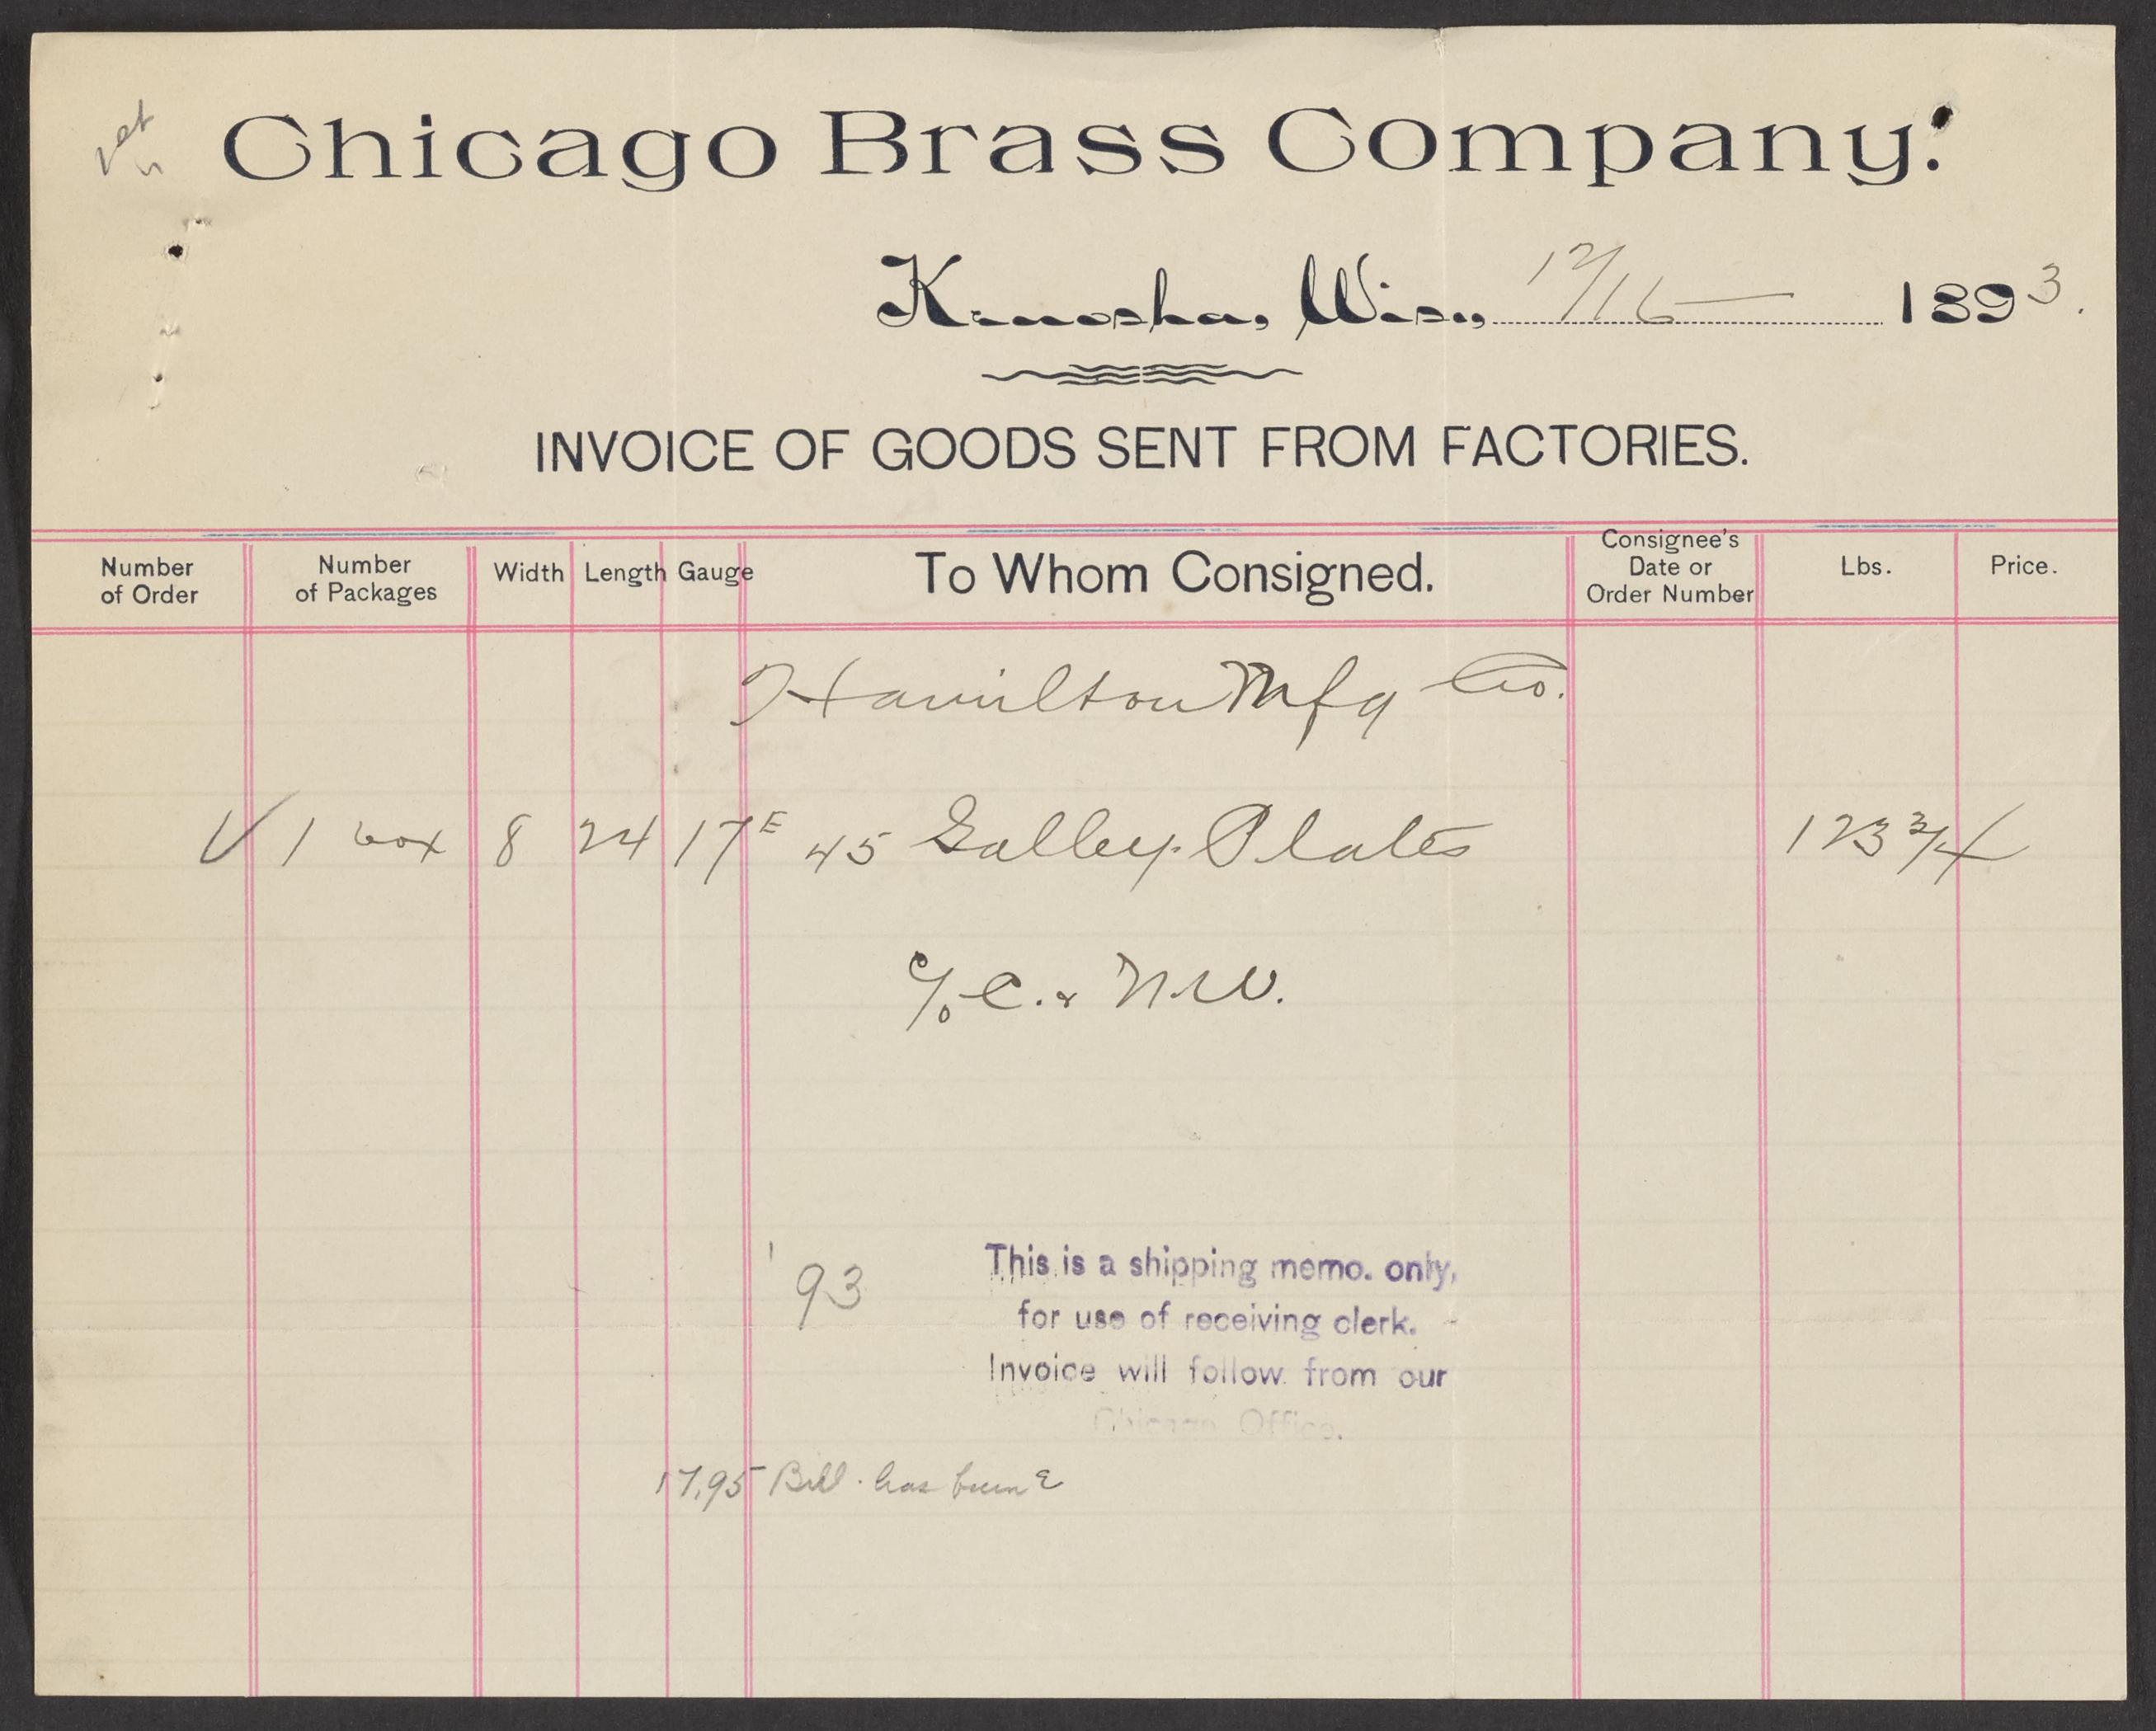 Chicago Brass Company.
Kenosha, Wis., 12/16 1893.
INVOICE OF GOODS SENT FROM FACTORIES.
Number of Order Number of Packages Width Length Gauge To Whom Consigned. Consignee's Date or Order Number Lbs. Price.
Hamilton Mfg Co.
√ 1 box 8 24 17E 45 Galley Plates 123 3/4
c/o C. & N.W.
'93
This is a shipping memo. only,
for use of receiving clerk.
Invoice will follow from our
Chicago Office.
17.95 Bill has